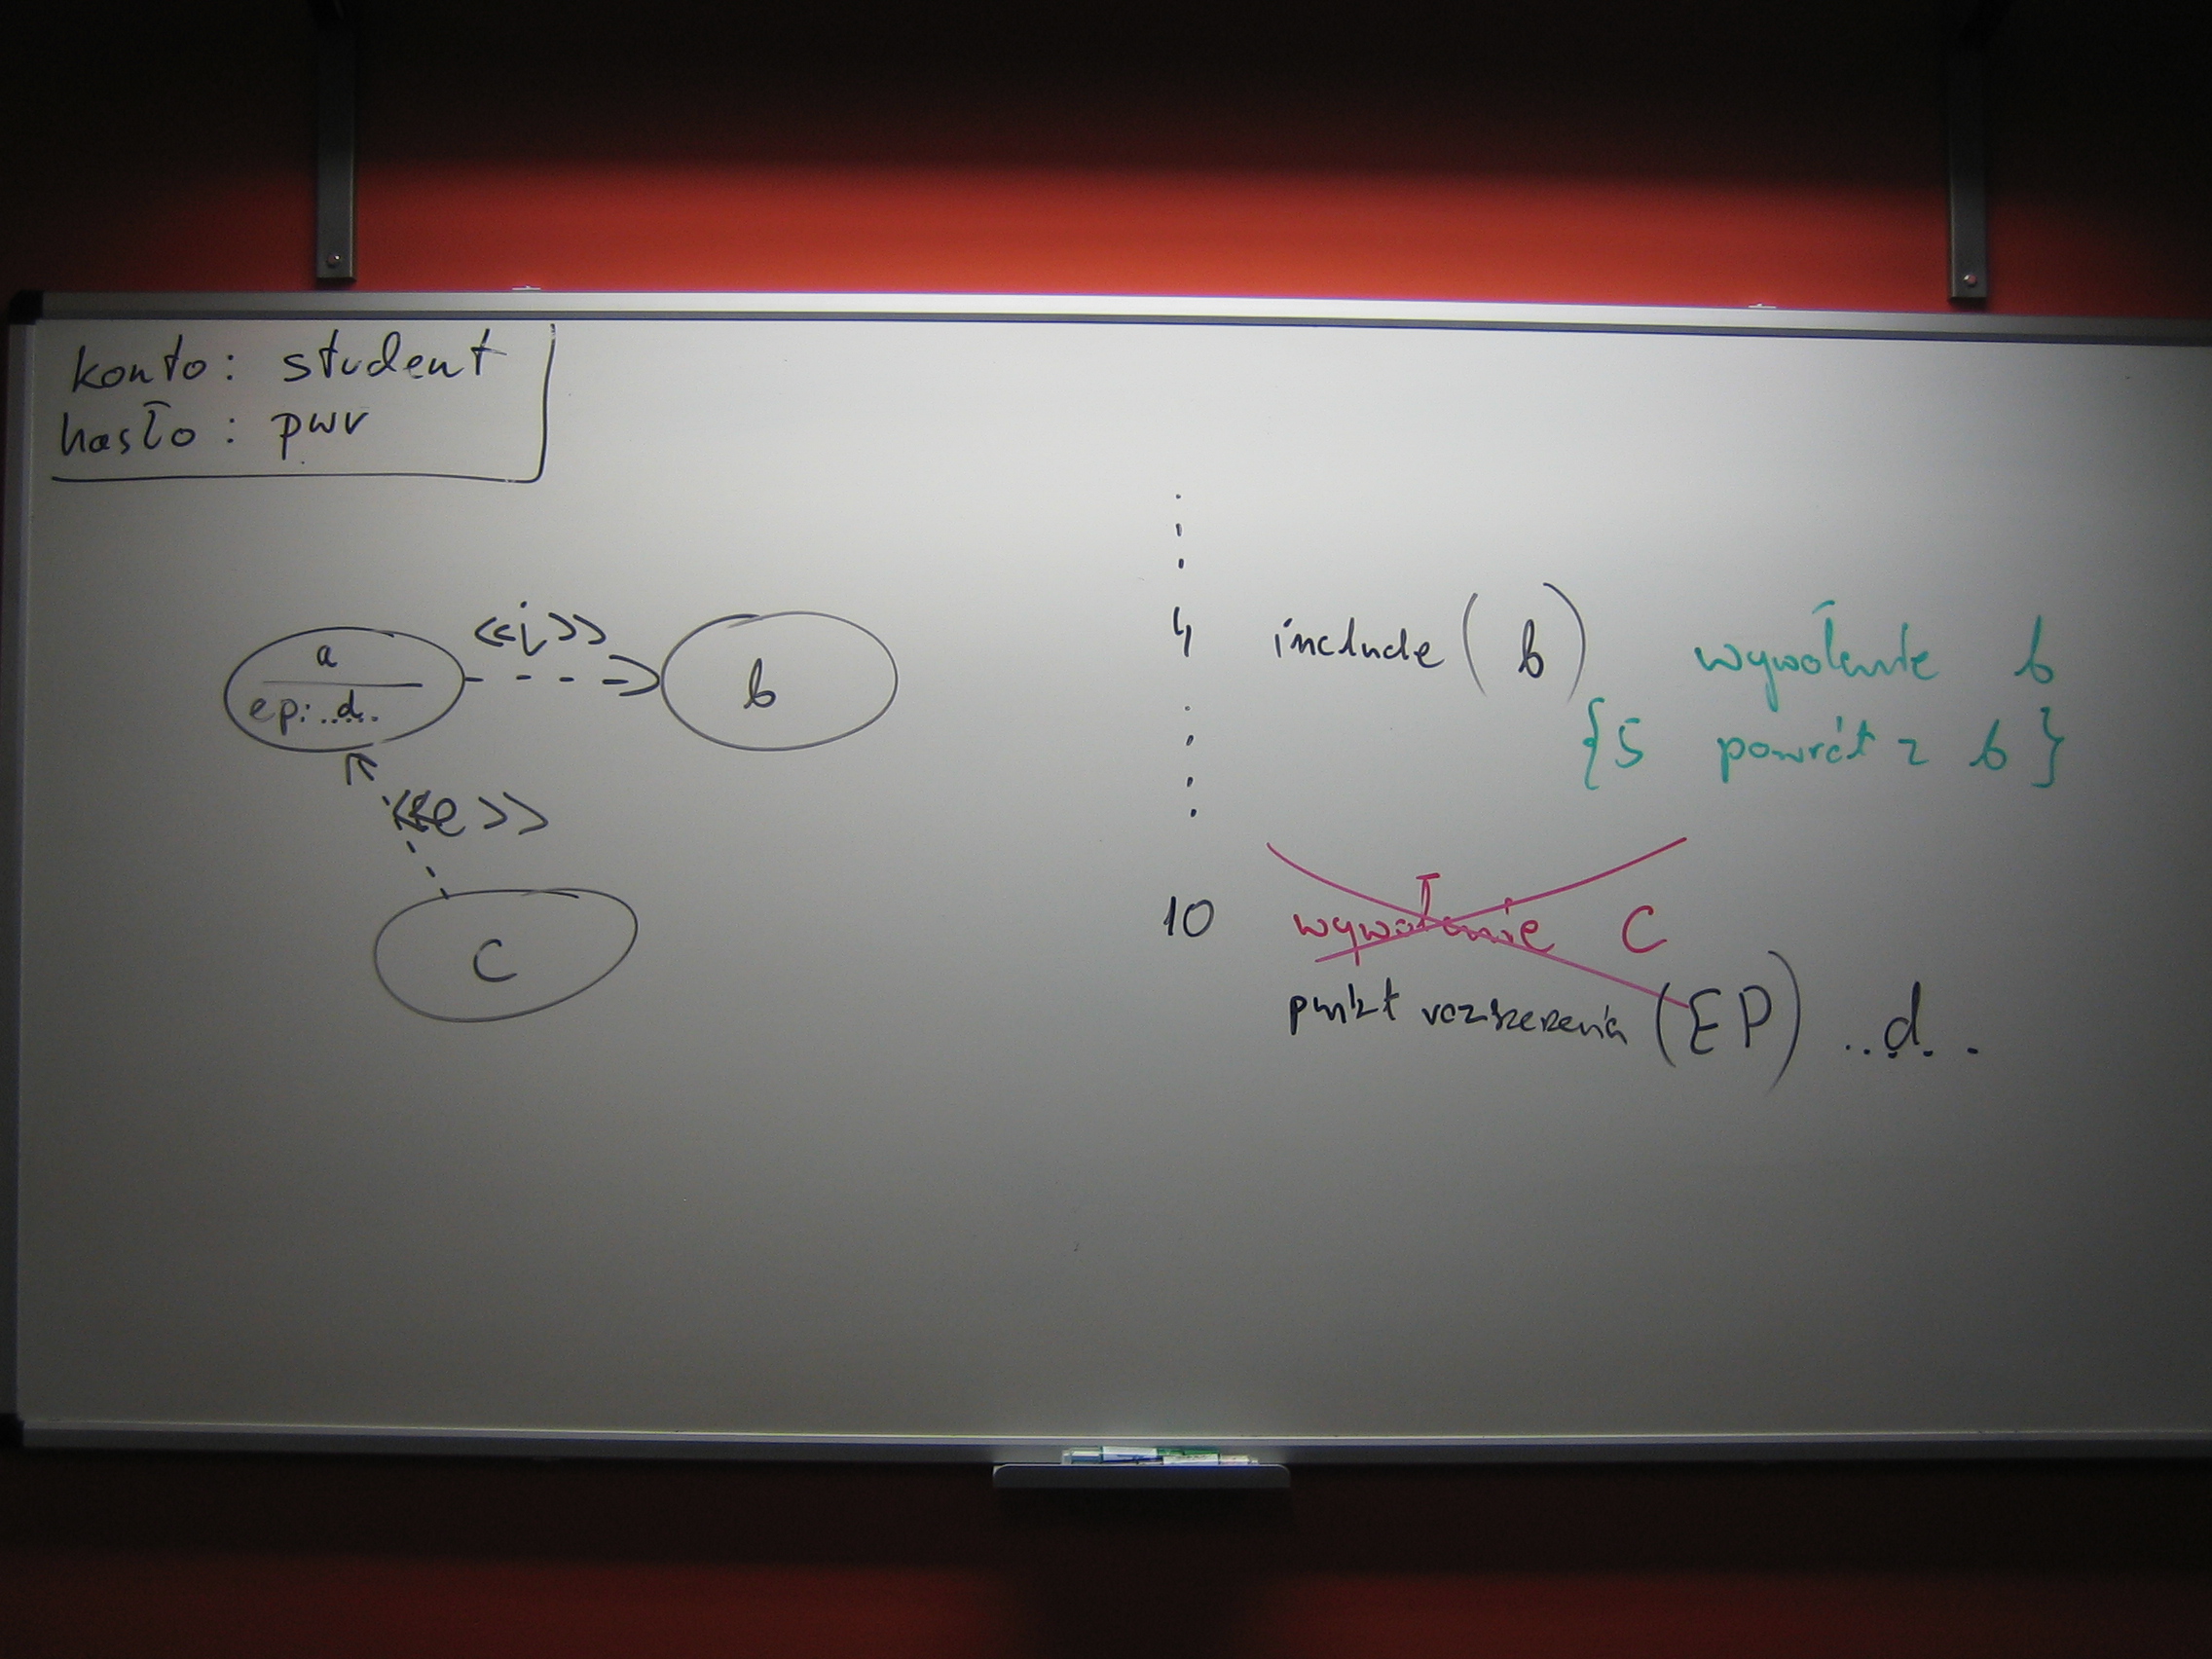 konto: student
hasło: pwr
<<i>>
a
ep: ..d..
b
<<e>>
C
4 include (b) wywołanie b
{5 powrót z b}
10 wywołanie C
punkt rozszerzenia (EP) ..d..